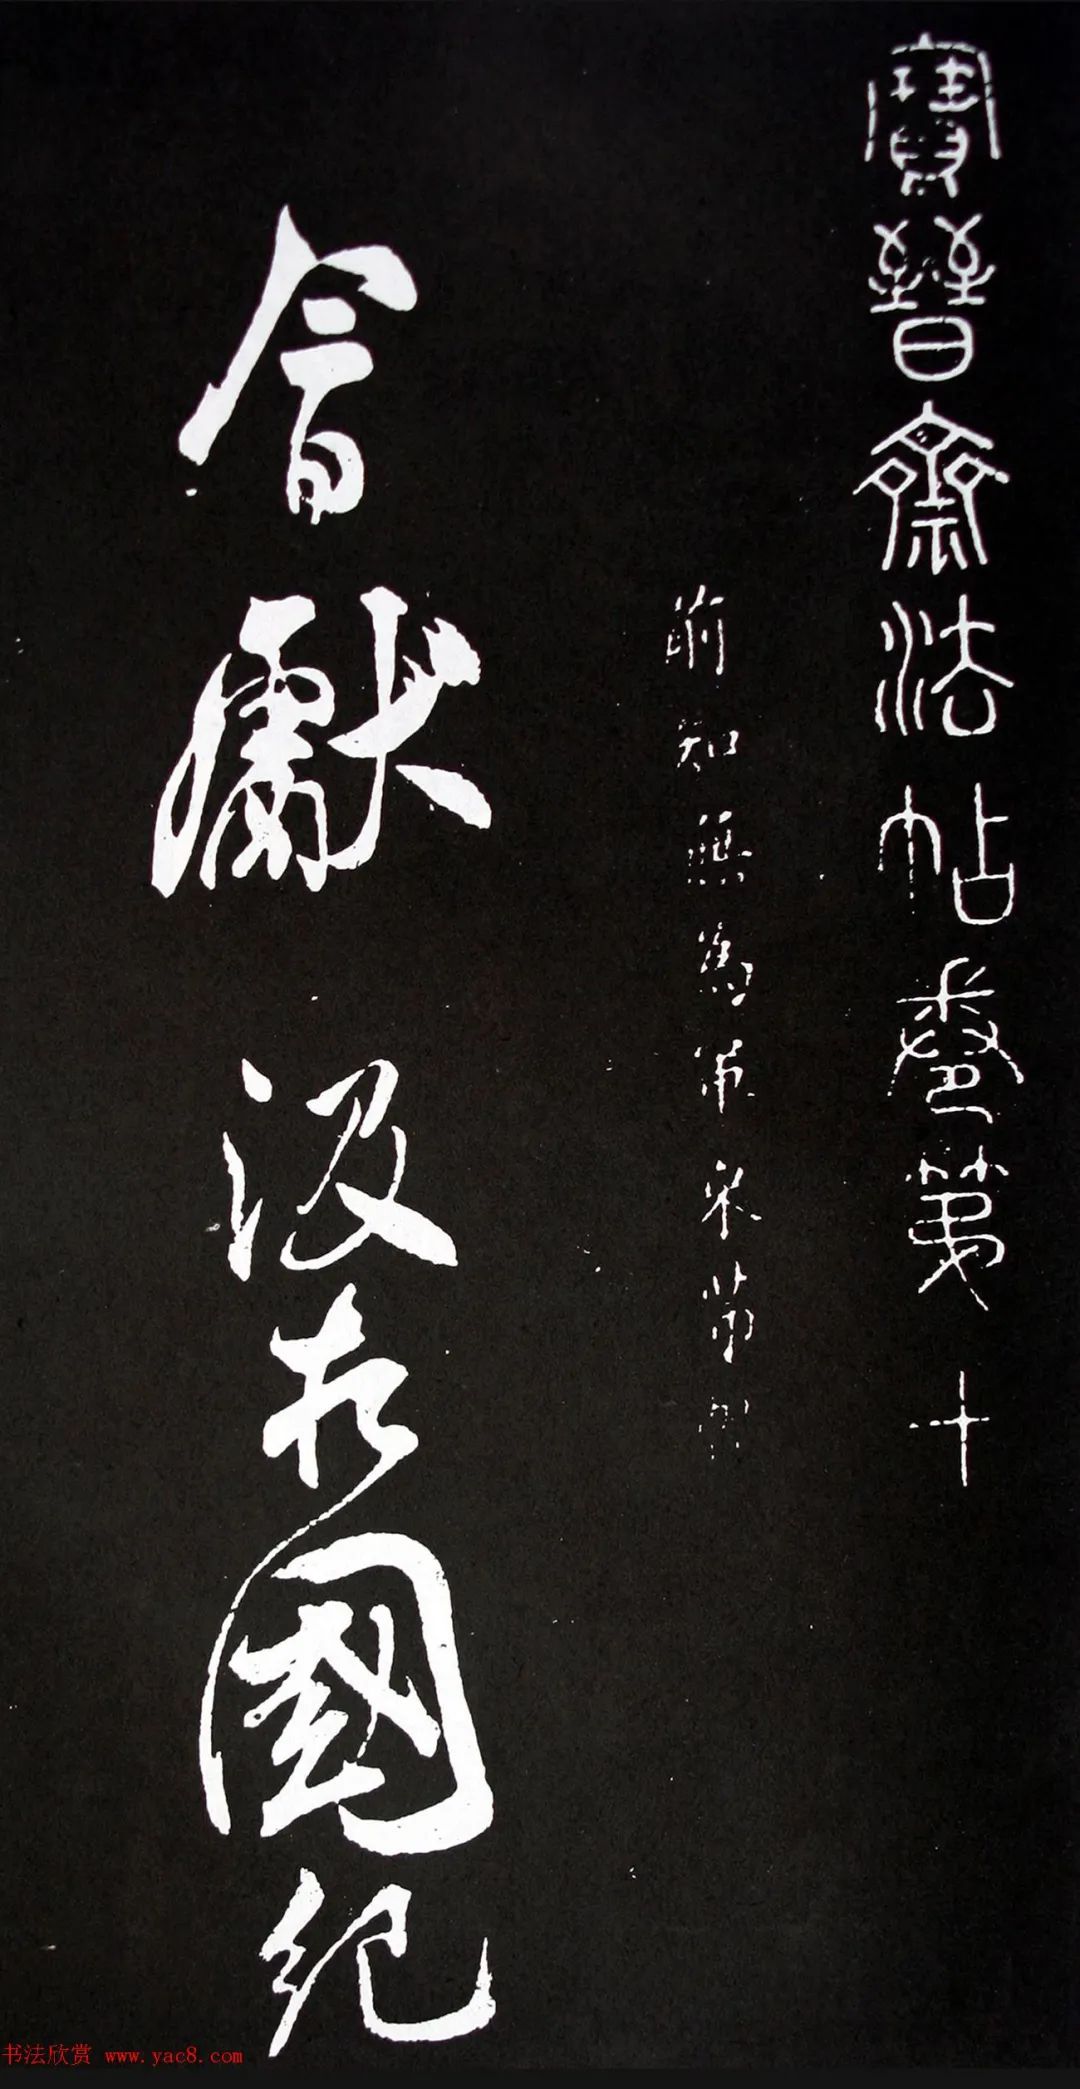 寶晉齋法帖卷第十
前知無為軍米芾
會獻汲相國紀
书法欣赏 www.yac8.com